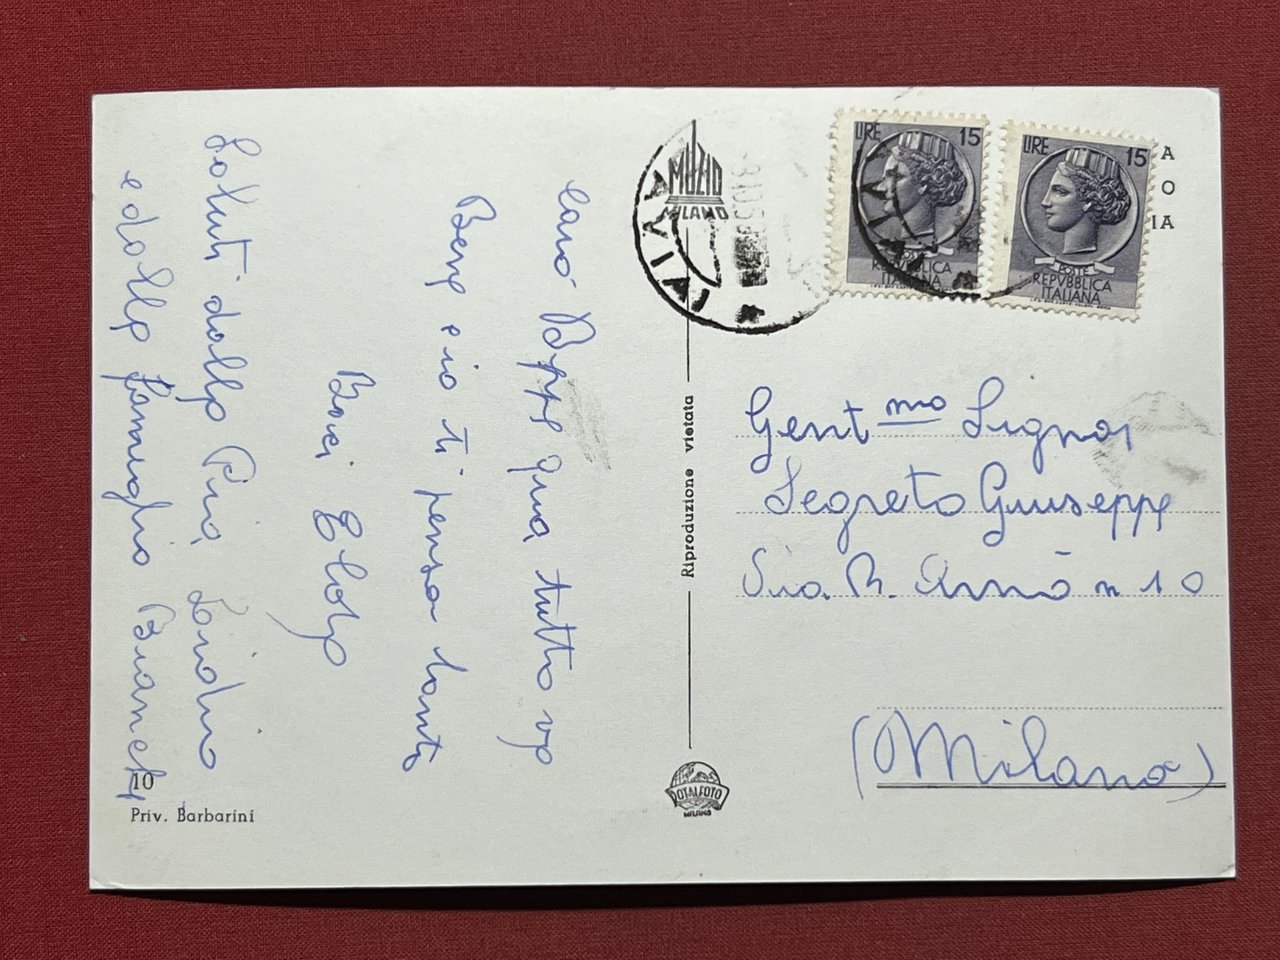 Caro Beppe qua tutto va
Bene e io ti penso tanto
Baci
Saluti dalla Pia,
e dalla famiglia
10
Priv. Barbarini
Riproduzione vietata
MUZIO
MILANO
PAVIA
TOTALFOTO
MILANO
LIRE 15
POSTE
REPVBBLICA
ITALIANA
LIRE 15
POSTE
REPVBBLICA
ITALIANA
A
O
IA
Gent mo Signor
Segreto Giuseppe
n 10
(Milano)